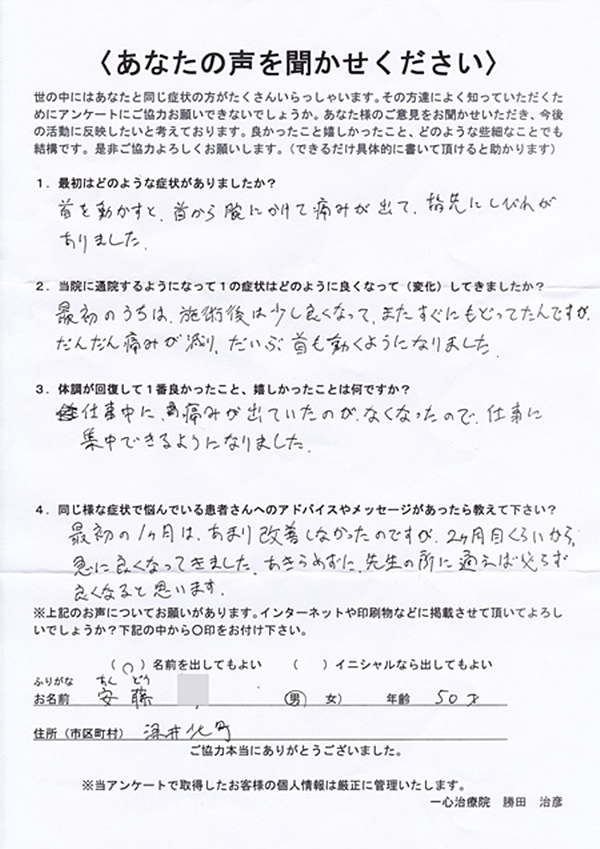 〈あなたの声を聞かせください〉
世の中にはあなたと同じ症状の方がたくさんいらっしゃいます。その方達によく知っていただくた
めにアンケートにご協力お願いできないでしょうか。あなた様のご意見をお聞かせいただき、今後
の活動に反映したいと考えております。良かったこと嬉しかったこと、どのような些細なことでも
結構です。是非ご協力よろしくお願いします。（できるだけ具体的に書いて頂けると助かります）
１．最初はどのような症状がありましたか？
首を動かすと、首から腕にかけて痛みが出て、指先にしびれが
ありました。
２．当院に通院するようになって１の症状はどのように良くなって（変化）してきましたか？
最初のうちは、施術後は少し良くなって、またすぐにもどってたんですが、
だんだん痛みが減り、だいぶ首も動くようになりました。
３．体調が回復して１番良かったこと、嬉しかったことは何ですか？
仕事中に、痛みが出ていたのが、なくなったので、仕事に
集中できるようになりました。
４．同じ様な症状で悩んでいる患者さんへのアドバイスやメッセージがあったら教えて下さい？
最初の1ヶ月は、あまり改善しなかったのですが、2ヶ月目くらいから、
急に良くなってきました。あきらめずに、先生の所に通えば必らず
良くなると思います。
※上記のお声についてお願いがあります。インターネットや印刷物などに掲載させて頂いてよろし
いでしょうか？下記の中から〇印をお付け下さい。
（○）名前を出してもよい （ ）イニシャルなら出してもよい
ふりがな あん どう
お名前 安藤 男 女） 年齢 50才
住所（市区町村） 深井北町
ご協力本当にありがとうございました。
※当アンケートで取得したお客様の個人情報は厳正に管理いたします。
一心治療院 勝田 治彦